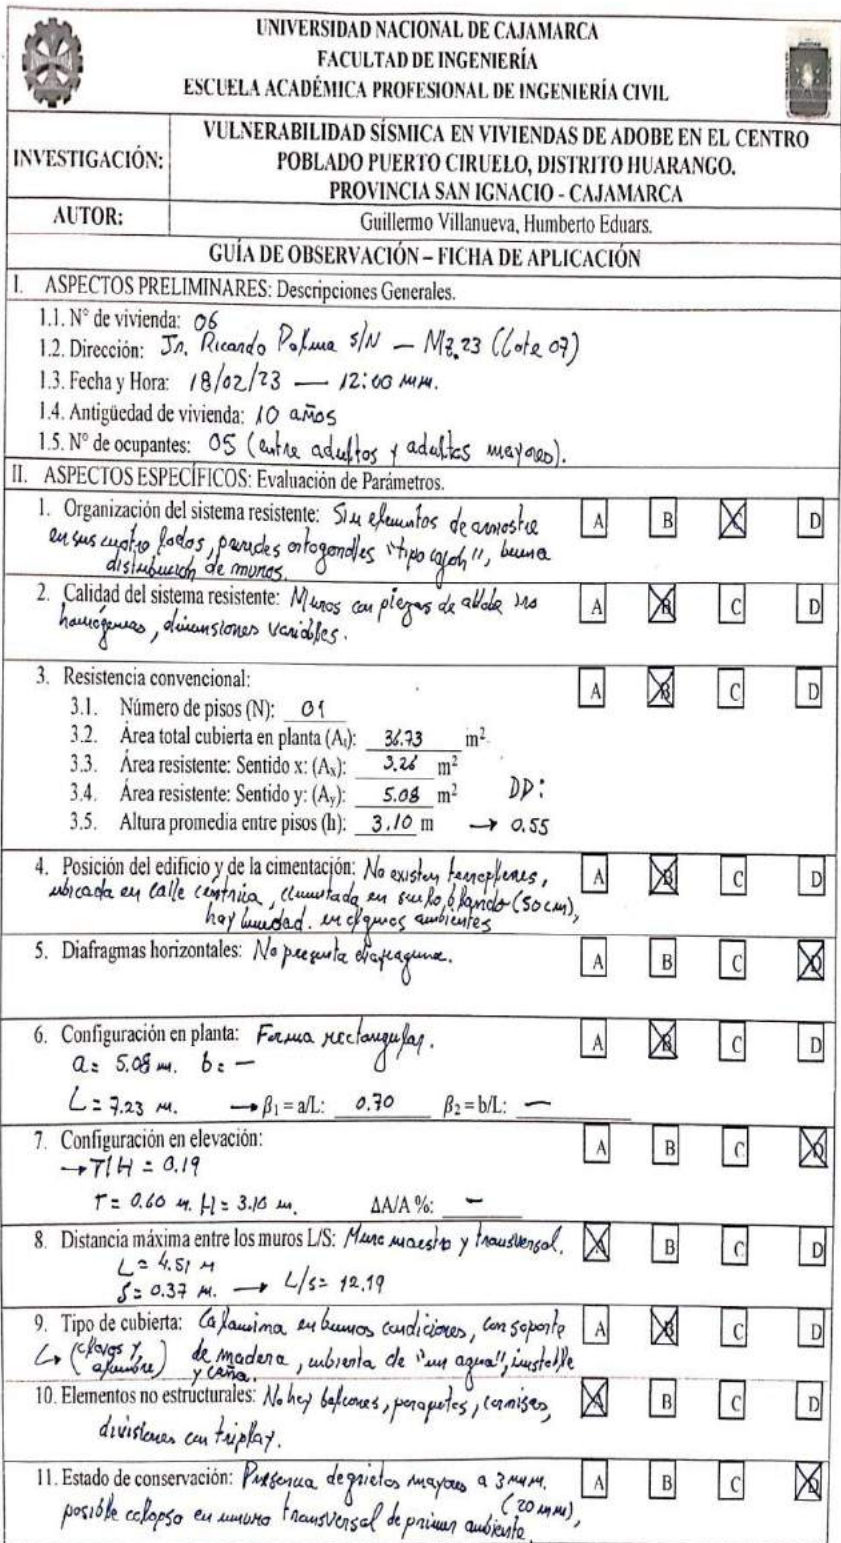 UNIVERSIDAD NACIONAL DE CAJAMARCA
FACULTAD DE INGENIERÍA
ESCUELA ACADÉMICA PROFESIONAL DE INGENIERÍA CIVIL
INVESTIGACIÓN:
VULNERABILIDAD SÍSMICA EN VIVIENDAS DE ADOBE EN EL CENTRO
POBLADO PUERTO CIRUELO, DISTRITO HUARANGO.
PROVINCIA SAN IGNACIO - CAJAMARCA
AUTOR:
Guillermo Villanueva, Humberto Eduars.
GUÍA DE OBSERVACIÓN – FICHA DE APLICACIÓN
I. ASPECTOS PRELIMINARES: Descripciones Generales.
1.1. N° de vivienda: 06
1.2. Dirección: Jr. Ricardo Palma S/N — Mz. 23 (Lote 07)
1.3. Fecha y Hora: 18/02/23 — 12:00 mm.
1.4. Antigüedad de vivienda: 10 años
1.5. N° de ocupantes: 05 (entre adultos y adultos mayores).
II. ASPECTOS ESPECÍFICOS: Evaluación de Parámetros.
1. Organización del sistema resistente: Sin elementos de arriostre A B C D
en sus cuatro lados, paredes ortogonales "tipo cajón", buena
distribución de muros.
2. Calidad del sistema resistente: Muros con piezas de adobe no A B C D
homógeneas, dimensiones variables.
3. Resistencia convencional: A B C D
3.1. Número de pisos (N): 01
3.2. Área total cubierta en planta (At): 36.73 m²
3.3. Área resistente: Sentido x: (Ax): 3.26 m²
3.4. Área resistente: Sentido y: (Ay): 5.08 m² DD:
3.5. Altura promedia entre pisos (h): 3.10 m → 0.55
4. Posición del edificio y de la cimentación: No existen terraplenes, A B C D
ubicada en calle céntrica, cimentada en suelo blando (50 cm),
hay humedad. en algunos ambientes
5. Diafragmas horizontales: No presenta diafragma. A B C D
6. Configuración en planta: Forma rectangular. A B C D
a = 5.08 m. b = —
L = 7.23 m. → β1 = a/L: 0.70 β2 = b/L: —
7. Configuración en elevación: A B C D
→ T/H = 0.19
T = 0.60 m. H = 3.10 m. ΔA/A %: —
8. Distancia máxima entre los muros L/S: Muro maestro y transversal. A B C D
L = 4.51 m
S = 0.37 m. → L/S = 12.19
9. Tipo de cubierta: Calamina en buenas condiciones, con soporte A B C D
↳ (clavos y alambre) de madera, cubierta de "un agua", inestable
y caña.
10. Elementos no estructurales: No hay balcones, parapetos, cornisas, A B C D
divisiones con triplay.
11. Estado de conservación: Presencia de grietas mayores a 3 mm. A B C D
(20 mm),
posible colapso en muro transversal de primer ambiente